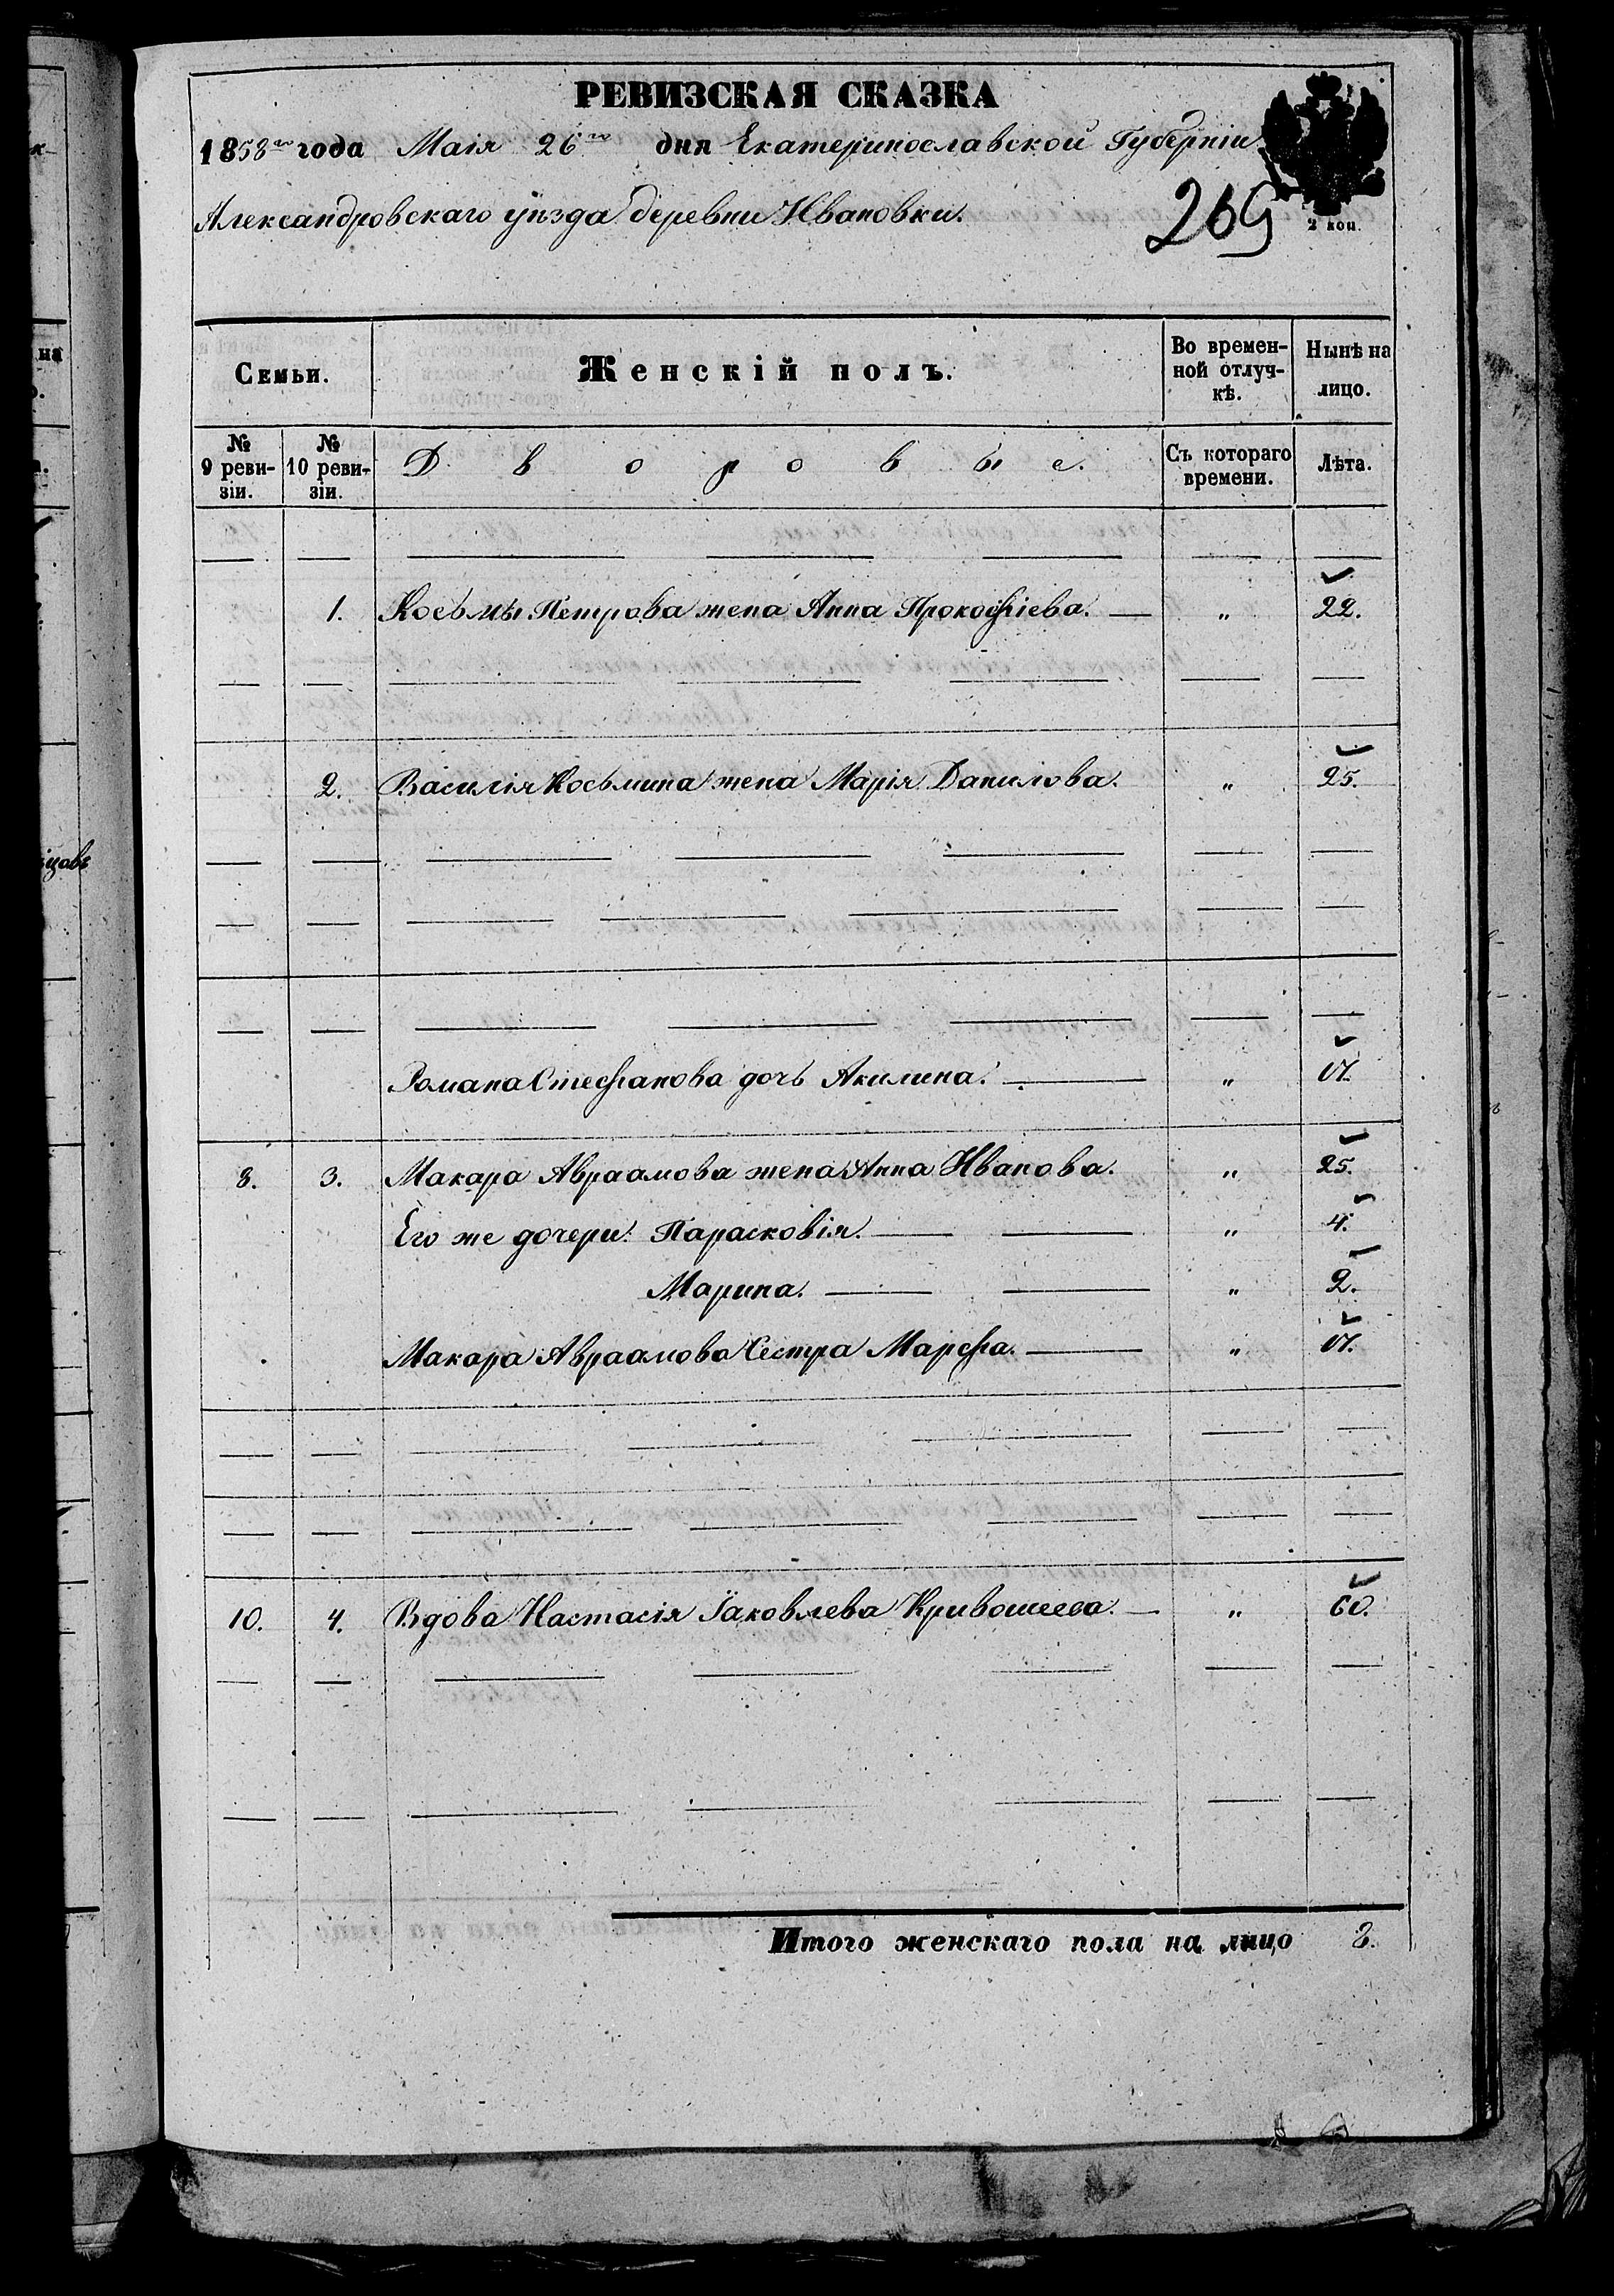 РЕВИЗСКАЯ СКАЗКА
1858го года Маія 26го дня Екатеринославской Губерніи
Александровскаго уѣзда деревни Ивановки.
269
2 коп.
Семьи.
Женскій полъ.
Во времен-
ной отлуч-
кѣ.
Нынѣ на
лицо.
№
9 реви-
зіи.
№
10 реви-
зіи.
Дворовые.
Съ котораго
времени.
Лѣта.
1. Косьмы Петрова жена Анна Прокофіева. — „ 22.
2. Василія Косьмина жена Марія Данилова. „ 25.
Романа Стефанова дочь Акилина. — „
8. 3. Макара Авраамова жена Анна Иванова. „ 25.
Его же дочери: Парасковія. — — „ 4.
Марина. — — „ 2.
Макара Авраамова Сестра Марфа. — „
10. 4. Вдова Настасія Іаковлева Кривошеева. — „ 60.
Итого женскаго пола на лицо 8.